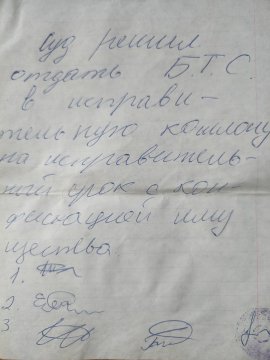 Суд решил
отдать Б.Т.С.
в исправи-
тельную колонию
на исправитель-
ный срок с кон-
фискацией иму
щества.
1.
2.
3